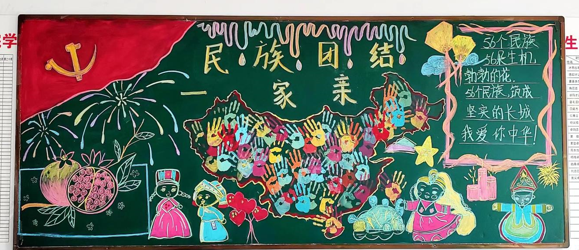 民族团结
一家亲
56个民族
56朵生机
勃勃的花,
56个民族,筑成
坚实的长城,
我爱你中华!
学
生